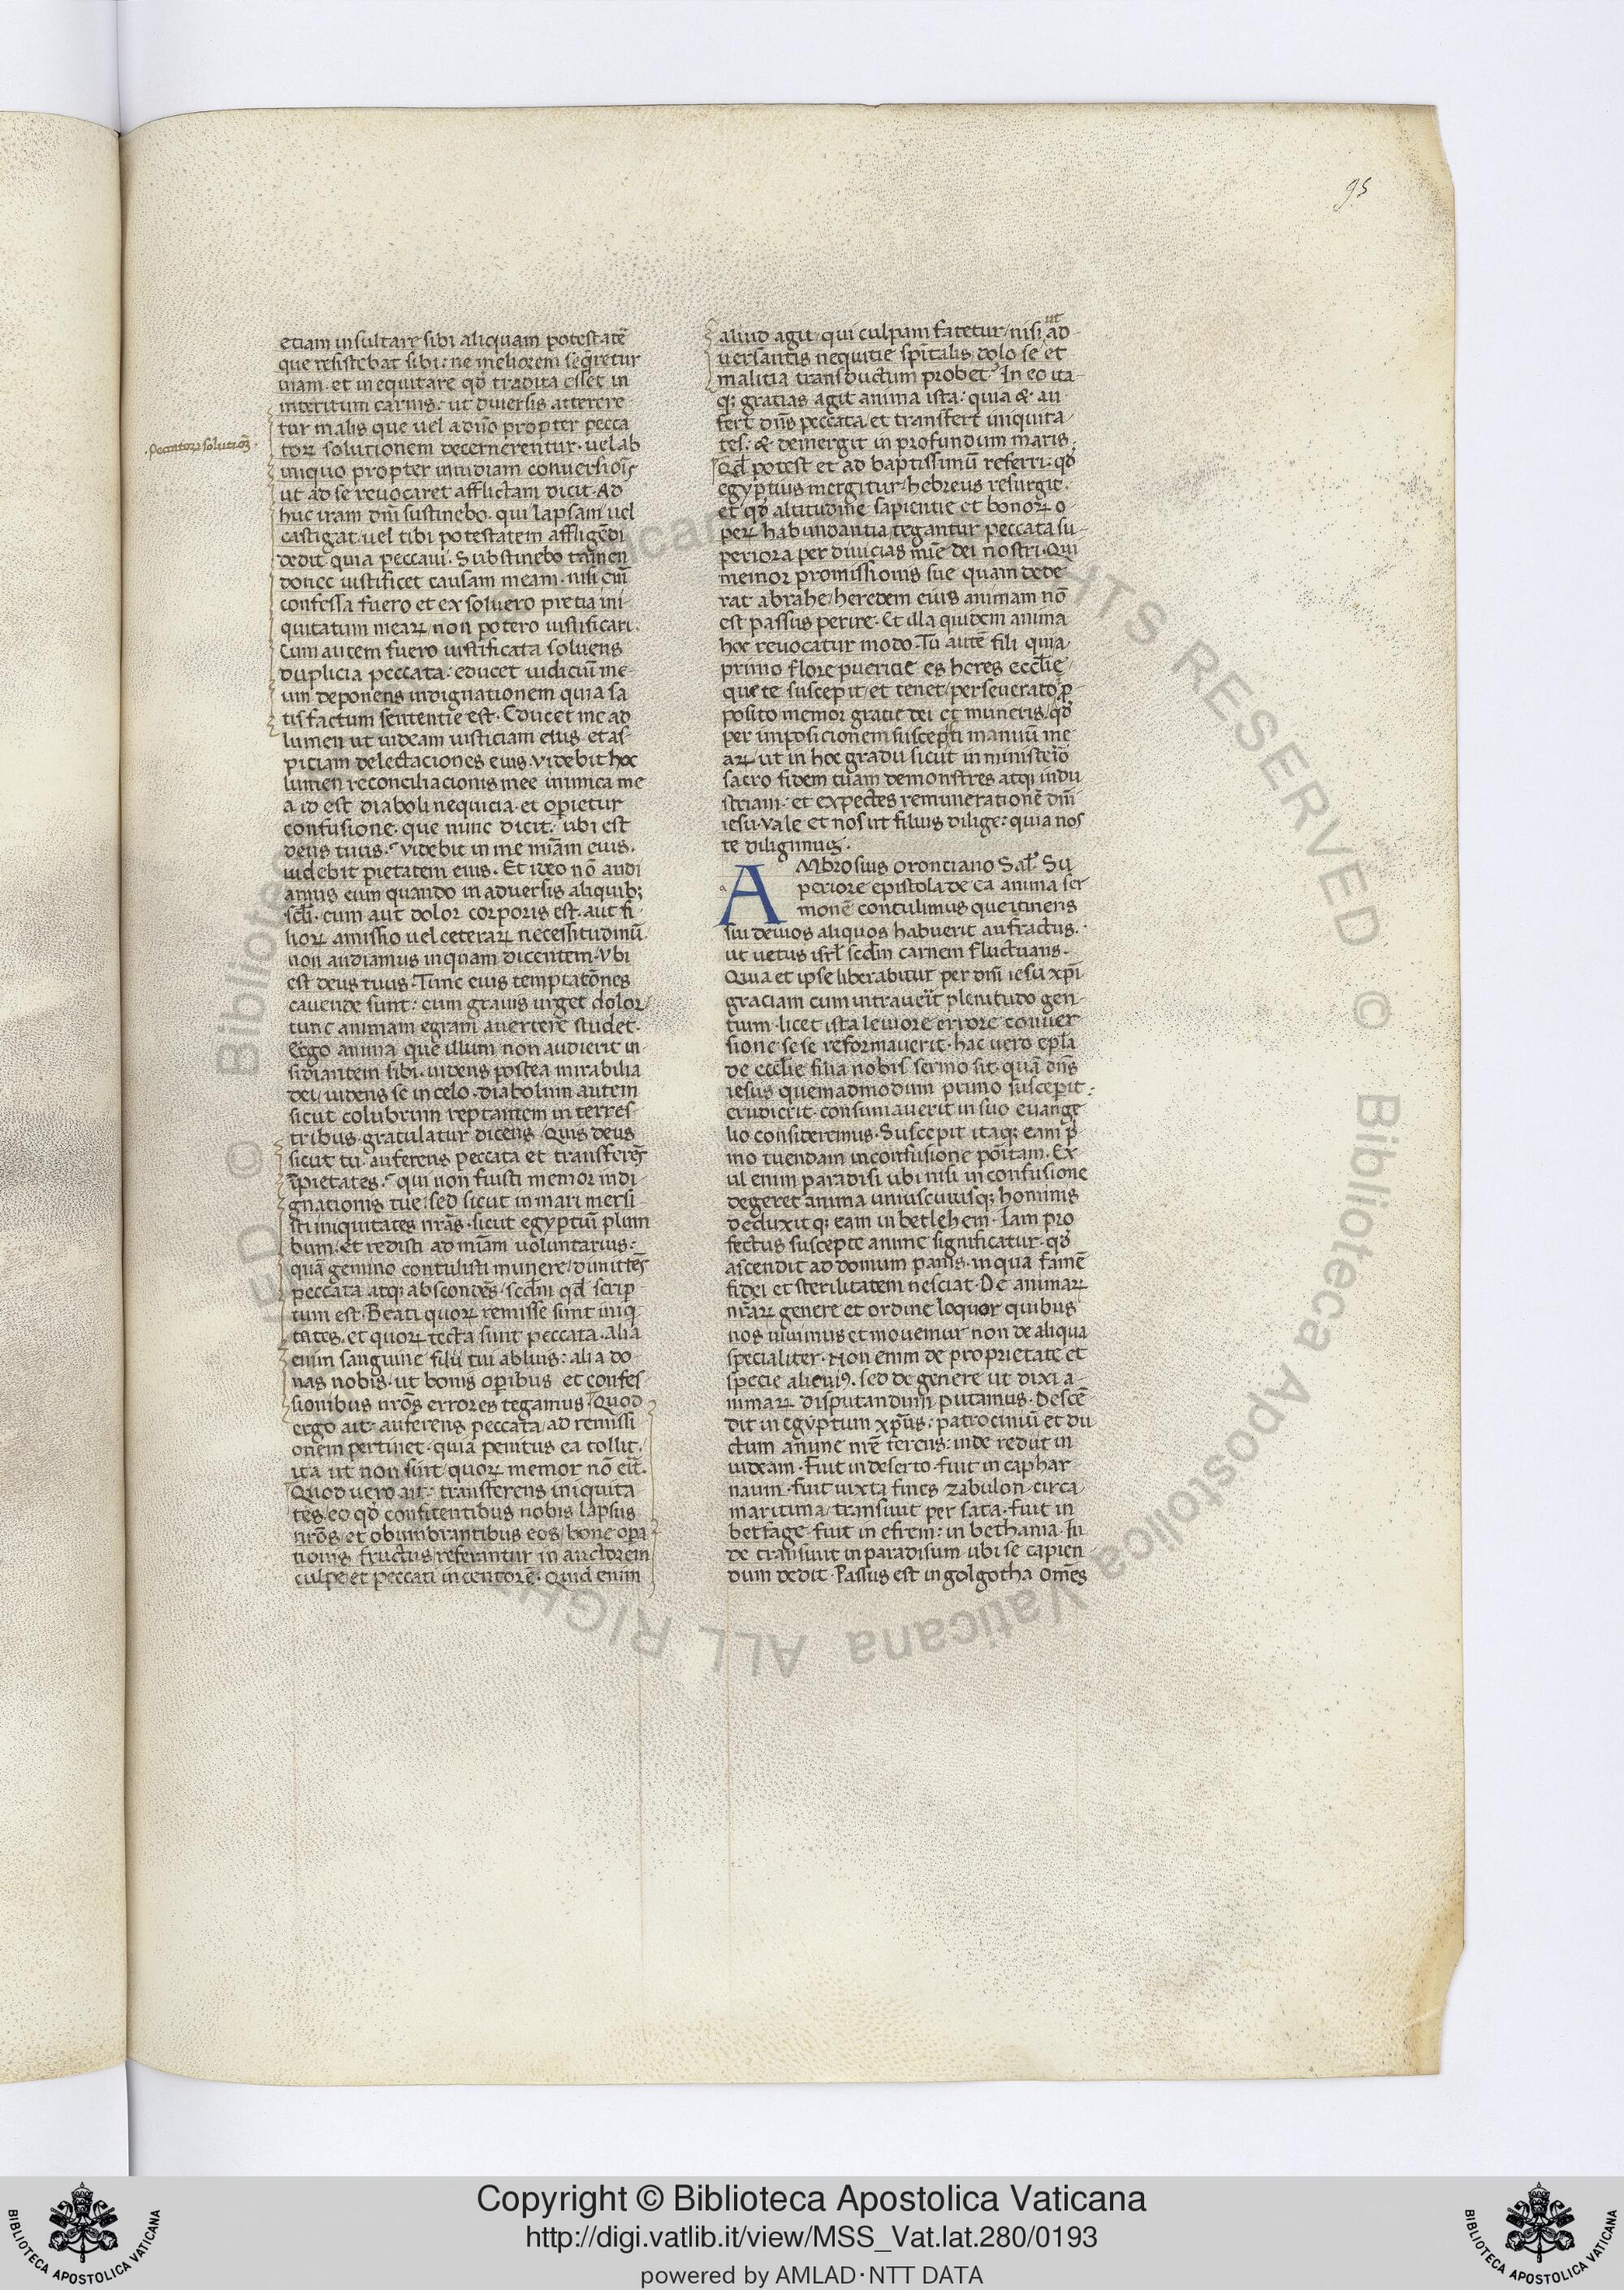 95
etiam insultare sibi aliquam potestatē
que resistebat sibi: ne meliorem seqretur
uiam. et inequitare qđ tradita esset in
interitum carnis. ut diuersis atterere
tur malis que uel a dn̄o propter pecca
.Peccatoꝝ solutioȝ.
toꝝ solutionem decernerentur. uel ab
iniquo propter inuidiam conuersiois
ut ad se reuocaret afflictam dicit. Ad
huc iram dn̄i sustinebo. qui lapsam uel
castigat. uel tibi potestatem affligēdi
dedit quia peccaui. Substinebo tamen
donec iustificet causam meam. nisi em̄
confessa fuero et exsoluero pretia ini
quitatum mearꝝ non potero iustificari.
Cum autem fuero iustificata soluens
duplicia peccata. educet iudiciū me
um deponens indignationem quia sa
tisfactum sententie est. Educet me ad
lumen ut uideam iusticiam eius. et as
piciam delectaciones eius. videbit hoc
lumen reconciliacionis mee inimica me
a id est diaboli nequicia. et opietur
confusione. que nunc dicit. ubi est
deus tuus. videbit in me mīam eius.
uidebit pietatem eius. Et ideo nō audi
amus eum quando in aduersis aliquib;
scl̄i. cum aut dolor corporis est. aut fi
lioꝝ amissio uel ceterarꝝ necessitudinū
non audiamus inquam dicentem. Vbi
est deus tuus. Tunc eius temptatōnes
cauende sunt: cum grauis urget dolor/
tunc animam egram auertere studet.
Ergo anima que illum non audierit in
sidiantem sibi. uidens postea mirabilia
dei/ uidens se in celo. diabolum autem
sicut colubrum reptantem in terres
tribus. gratulatur dicens. Quis deus
sicut tu. auferens peccata et transferēs
īpietates. qui non fuisti memor indi
gnationis tue: sed sicut in mari mersi
sti iniquitates nr̄as. sicut egyptiū plum
bum. et redisti ad mīam uoluntarius:
quā gemino contulisti munere/ dimittēs
peccata. atq; abscondēs. scdm̄ qđ scrip
tum est. Beati quoꝝ remisse sunt iniq
tates. et quoꝝ tecta sunt peccata. alia
enim sanguine filii tui abluis: alia do
nas nobis. ut bonis opibus et confes
sionibus nr̄os errores tegamus. Quod
ergo ait. auferens peccata/ ad remissi
onem pertinet. quia penitus ea tollit.
ita ut non sint quoꝝ memor nō eit.
Quod uero ait. transferens iniquita
tes. eo qđ confitentibus nobis lapsus
nr̄os/ et obumbrantibus eos/ bone opa
tionis fructus/ referantur in auctorem
culpe et peccati incentorē. Quid enim
ut
aliud agit. qui culpam fatetur/ nisi ad
uersantis nequitie spīritalis dolo se et
malitia transductum probet. In eo ita
q; gratias agit anima ista: quia & au
fert dn̄s peccata/ et transfert iniquita
tes: & demergit in profundum maris.
Qđ potest et ad baptissimū referri: qđ
egyptius mergitur/ hebreus resurgit.
et qđ altitudine sapientie et bonoꝝ o
perꝝ habundantia/ tegantur peccata su
periora per diuicias mīe dei nostri. Qui
memor promissionis sue quam dede
rat abrahe/ heredem eius animam nō
est passus perire. Et illa quidem anima
hoc reuocatur modo. Tu autē fili quia
primo flore puericie es heres eccl̄ie
que te suscepit/ et tenet/ perseuerato p
posito memor gratie dei et muneris/ qđ
per imposicionem suscepti manuū me
arꝝ/ ut in hoc gradu sicut in ministeio
sacro fidem tuam demonstres atq; indu
striam. et expectes remunerationē dn̄i
iesu. vale et nos ut filius dilige: quia nos
te diligimus.
AMbrosius orontiano Sal̄. Su
periore epistola de ea anima ser
monē contulimus que itineris
sui deuios aliquos habuerit anfractus.
ut uetus isrl̄ scdm̄ carnem fluctuans.
Quia et ipse liberabitur per dn̄i iesu xpi
graciam cum intraueit plenitudo gen
tium. licet ista leuiore errore conuer
sione sese reformauerit. hac uero epl̄a
de eccl̄ie filia nobis sermo sit. quā dn̄s
iesus quemadmodum primo susceperit:
erudierit. consumauerit in suo euange
lio consideremus. Suscepit itaq; eam p
mo tuendam in confusione poitam. Ex
ul enim paradisi ubi nisi in confusione
degeret anima uniuscuiusq; hominis
deduxit q; eam in betlehem. Iam pro
fectus suscepte anime significatur. qđ
ascendit ad domum panis. in qua famē
fidei et sterilitatem nesciat. De animarꝝ
nr̄arꝝ genere et ordine loquor quibus
nos uiuimus et mouemur non de aliqua
specialiter. Non enim de proprietate et
specie alicuiꝰ. sed de genere ut dixi a
nimarꝝ disputandum putamus. Descē
dit in egyptum xp̄us. patrociniū et du
ctum anime nr̄e ferens: inde rediit in
iudeam. Fuit in deserto. fuit in caphar
naum. fuit iuxta fines zabulon. circa
maritima/ transiuit per sata. fuit in
betfage. fuit in efrem: in bethania. In
de transiuit in paradisum. ubi se capien
dum dedit. Passus est in golgotha. Omēs
Copyright © Biblioteca Apostolica Vaticana
http://digi.vatlib.it/view/MSS_Vat.lat.280/0193
powered by AMLAD·NTT DATA